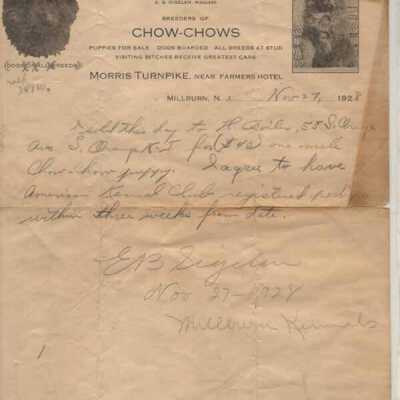 BREEDERS OF
CHOW-CHOWS
PUPPIES FOR SALE DOGS BOARDED ALL BREEDS AT STUD
VISITING BITCHES RECEIVE GREATEST CARE
MORRIS TURNPIKE, NEAR FARMERS HOTEL
MILLBURN, N. Nov 27, 1928
I sold this day to H 55 S.
Ave S. for ( one male
Chow-chow puppy. I agree to have
American Kennel Club registered
within three weeks from date.
EB
Nov 27-1928
Millburn Kennels